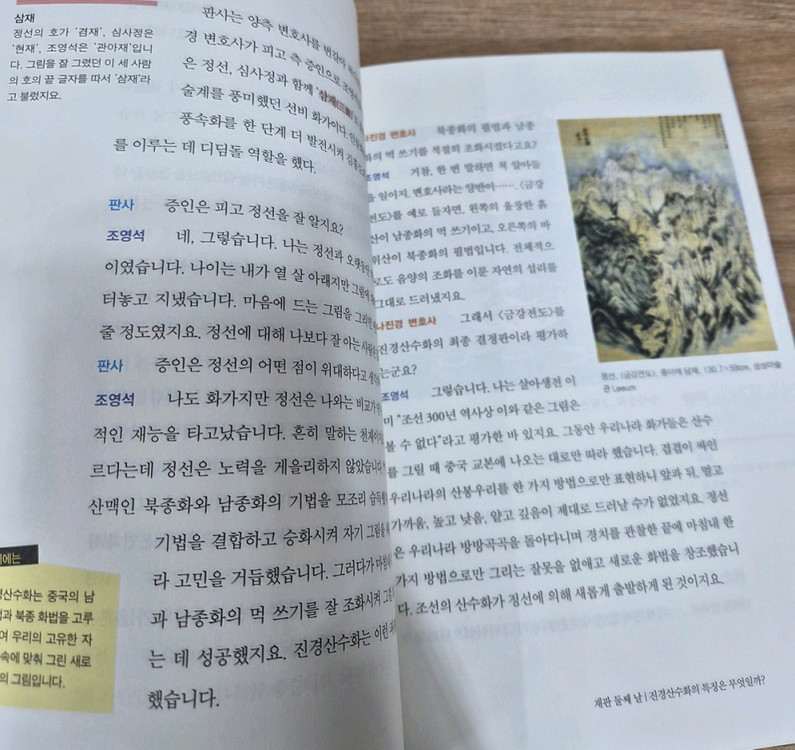 삼재
정선의 호가 '겸재', 심사정은
'현재', 조영석은 '관아재'입니
다. 그림을 잘 그렸던 이 세 사람
의 호의 끝 글자를 따서 '삼재'라
고 불렀지요.
판사는 양측 변호사를 번갈아
경 변호사가 피고 측 증인으로
은 정선, 심사정과 함께 '삼재
술계를 풍미했던 선비 화가이다.
풍속화를 한 단계 더 발전시켜
를 이루는 데 디딤돌 역할을 했다.
판사 증인은 피고 정선을 잘 알지요?
조영석 네, 그렇습니다. 나는 정선과
이였습니다. 나이는 내가 열 살 아래지만
터놓고 지냈습니다. 마음에 드는 그림을
줄 정도였지요. 정선에 대해 나보다 잘 아는
판사 증인은 정선의 어떤 점이 위대하다고
조영석 나도 화가지만 정선은 나와는
적인 재능을 타고났습니다. 흔히 말하는
르다는데 정선은 노력을 게을리하지 않았습니다.
산맥인 북종화와 남종화의 기법을 모조리
기법을 결합하고 승화시켜 자기 그림을
라 고민을 거듭했습니다. 그러다가
과 남종화의 먹 쓰기를 잘 조화시켜
는 데 성공했지요. 진경산수화는 이런
했습니다.
경산수화는 중국의 남
법과 북종 화법을 고루
여 우리의 고유한 자
속에 맞춰 그린 새로
의 그림입니다.
나진경 변호사 북종화의 필법과 남종
화의 먹 쓰기를 적절히 조화시켰다고요?
조영석 거참, 한 번 말하면 척 알아들
을 일이지, 변호사라는 양반이……. 〈금강
전도〉를 예로 들자면, 왼쪽의 울창한 흙
산이 남종화의 먹 쓰기이고, 오른쪽의 바
위산이 북종화의 필법입니다. 전체적으
로도 음양의 조화를 이룬 자연의 섭리를
그대로 드러냈지요.
나진경 변호사 그래서 〈금강전도〉를
진경산수화의 최종 결정판이라 평가하
는군요?
조영석 그렇습니다. 나는 살아생전 이
미 "조선 300년 역사상 이와 같은 그림은
볼 수 없다"라고 평가한 바 있지요. 그동안 우리나라 화가들은 산수
를 그릴 때 중국 교본에 나오는 대로만 따라 했습니다. 겹겹이 싸인
우리나라의 산봉우리를 한 가지 방법으로만 표현하니 앞과 뒤, 멀고
가까움, 높고 낮음, 얕고 깊음이 제대로 드러날 수가 없었지요. 정선
은 우리나라 방방곡곡을 돌아다니며 경치를 관찰한 끝에 마침내 한
가지 방법으로만 그리는 잘못을 없애고 새로운 화법을 창조했습니
다. 조선의 산수화가 정선에 의해 새롭게 출발하게 된 것이지요.
정선, 〈금강전도〉, 종이에 담채, 130.7×59cm, 삼성미술
관 Leeum
재판 둘째 날 | 진경산수화의 특징은 무엇일까?